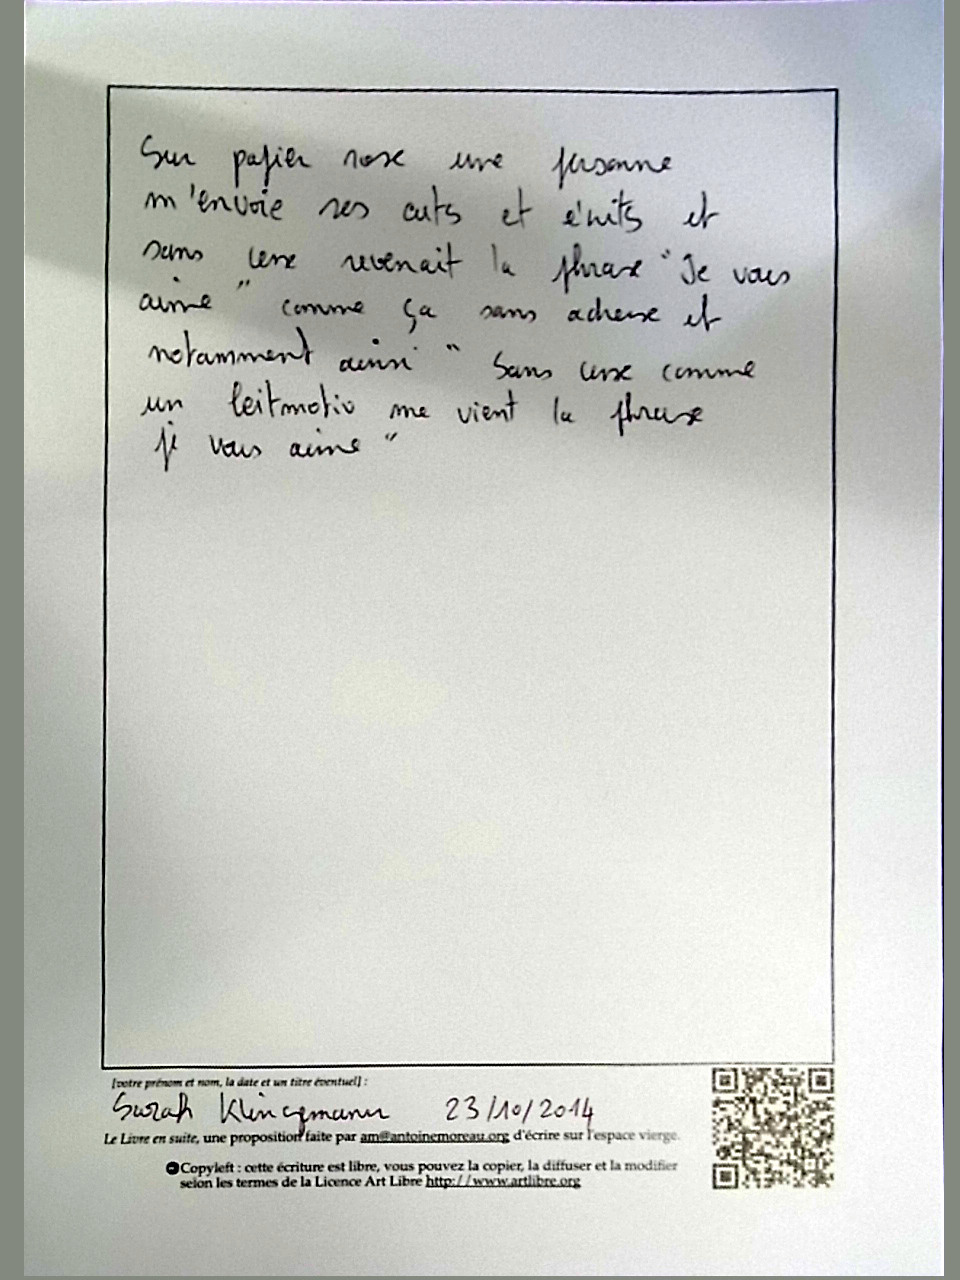 Sur papier rose une personne
m'envoie ses cuts et écrits et
sans cesse revenait la phrase "Je vous
aime" comme ça sans adresse et
notamment ainsi "Sans cesse comme
un leitmotiv me vient la phrase
je vous aime"
[votre prénom et nom, la date et un titre éventuel] :
Sarah Klingemann 23/10/2014
Le Livre en suite, une proposition faite par am@antoinemoreau.org d'écrire sur l'espace vierge.
Copyleft : cette écriture est libre, vous pouvez la copier, la diffuser et la modifier
selon les termes de la Licence Art Libre http://www.artlibre.org